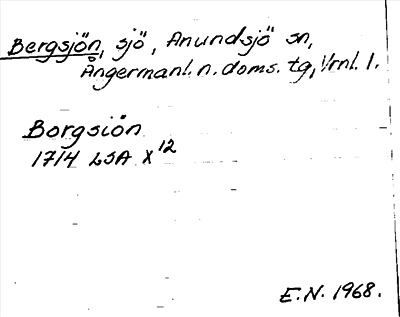 Bergsjön, sjö, Anundsjö sn,
Ångermanl. n. doms. tg, Vrnl. l.
Borgsiön
1714 LSA X12
E.N. 1968.